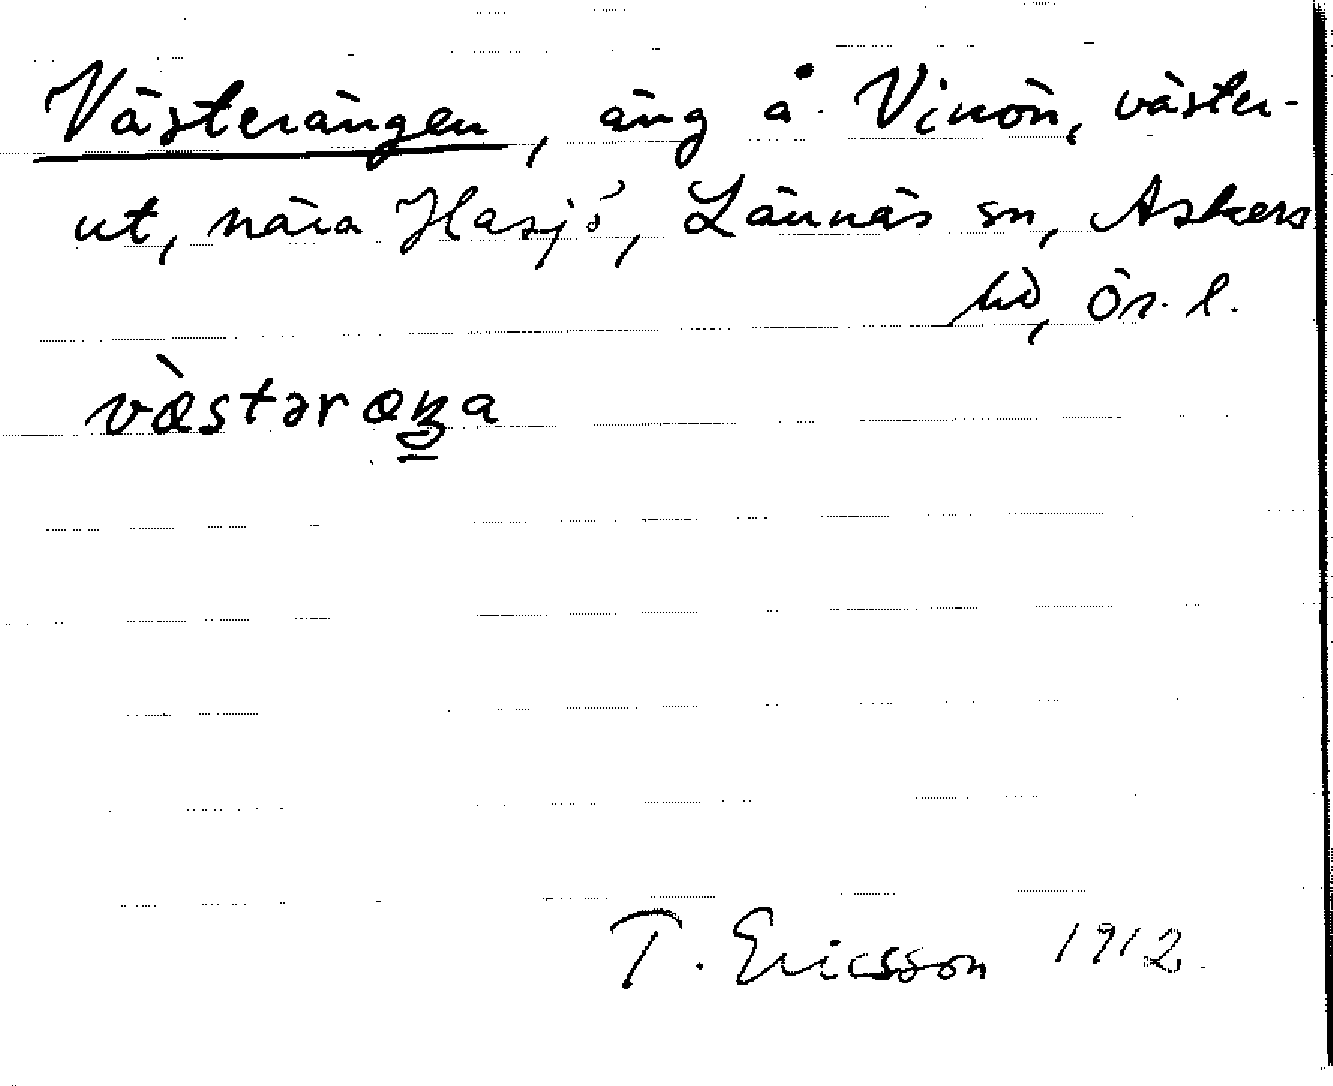 Västerängen, äng å Vinön, väster-
ut, nära Hasjö, Lännäs sn, Askers
hd, Ör. l.
væ̀stəræŋa
T. Ericsson 1912